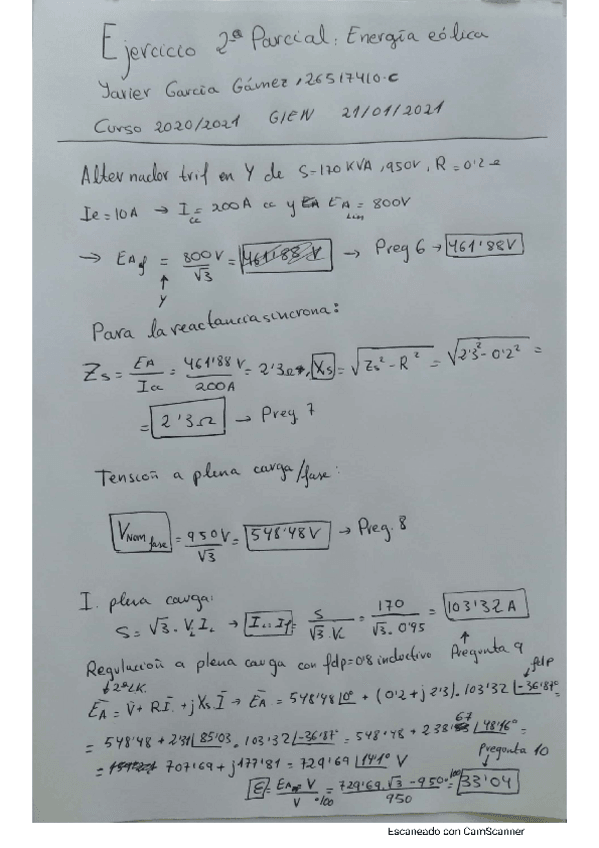 Ejercicio 2º Parcial: Energía eólica
Javier García Gámez, 26517410-C
Curso 2020/2021 GIEN 21/01/2021
Alternador trif en Y de S=170 KVA, 950V, R=0'2 Ω
Ie=10A → Icc=200A cc y EA EA Lin = 800V
→ EAf = 800V/√3 = 461'88 V → Preg 6 → 461'88V
↑
Y
Para la reactancia síncrona:
Zs = EA/Icc = 461'88 V/200A = 2'3Ω →, Xs = √Zs² - R² = √2'3² - 0'2² =
= 2'3Ω → Preg 7
Tensión a plena carga/fase:
VNom fase = 950V/√3 = 548'48V → Preg. 8
I. plena carga:
S = √3 · VL IL → IL=If = S/√3·VL = 170/√3·0'95 = 103'32 A
↑
Regulación a plena carga con fdp=0'8 inductivo Pregunta 9 fdp
↓ 2ªLK.
EA = V + R I + jXs I → EA = 548'48 |0º + (0'2 + j2'3) · 103'32 |-36'87º =
= 548'48 + 2'31 |85'03 · 103'32 |-36'87º = 548'48 + 238'67 |48'16º =
= 707'69 + j177'81 = 729'69 |14'1º V
Pregunta 10
ε = EA - V/V · 100 = 729'69·√3 - 950/950 · 100 = 33'04
Escaneado con CamScanner